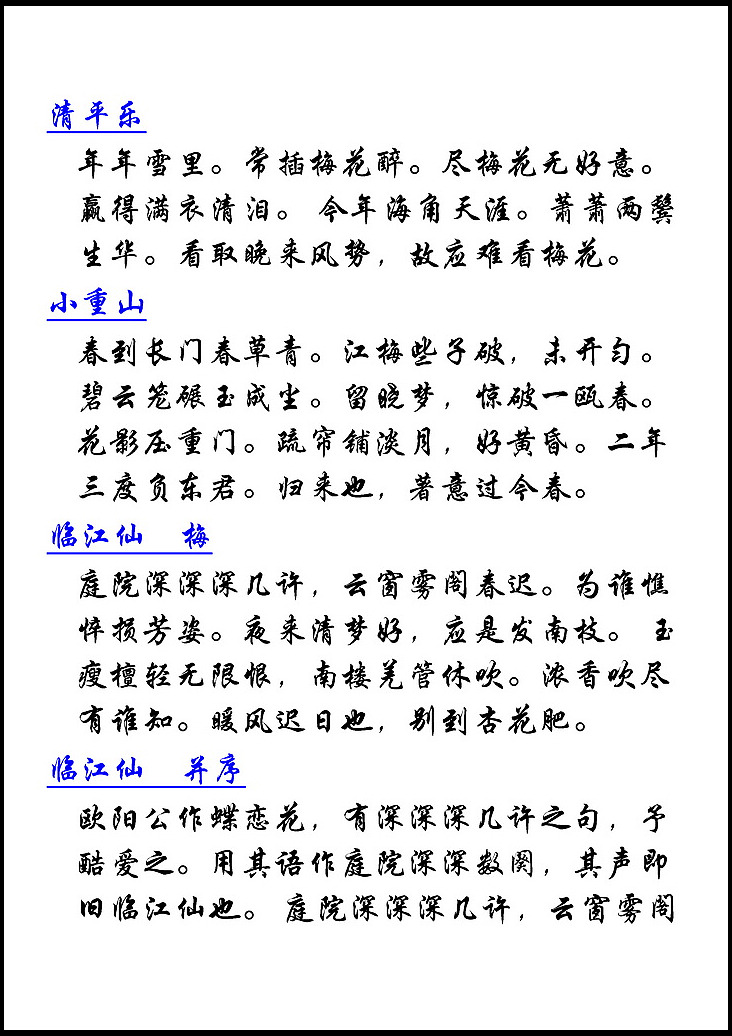 清平乐
年年雪里。常插梅花醉。尽梅花无好意。
赢得满衣清泪。 今年海角天涯。萧萧两鬓
生华。看取晚来风势，故应难看梅花。
小重山
春到长门春草青。江梅些子破，未开匀。
碧云笼碾玉成尘。留晓梦，惊破一瓯春。
花影压重门。疏帘铺淡月，好黄昏。二年
三度负东君。归来也，著意过今春。
临江仙 梅
庭院深深深几许，云窗雾阁春迟。为谁憔
悴损芳姿。夜来清梦好，应是发南枝。 玉
瘦檀轻无限恨，南楼羌管休吹。浓香吹尽
有谁知。暖风迟日也，别到杏花肥。
临江仙 并序
欧阳公作蝶恋花，有深深深几许之句，予
酷爱之。用其语作庭院深深数阕，其声即
旧临江仙也。 庭院深深深几许，云窗雾阁